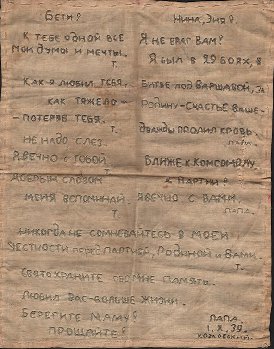 Бети!
К тебе одной все
мои думы и мечты.
Т.
Как я любил тебя,
как тяжело
потеряв тебя.
Т.
Не надо слез.
Я вечно с тобой.
Т.
Добрым словом
меня вспоминай.
Т.
Нина, Зия!
Я не враг вам!
Я был в 29 боях, в
битве под Варшавой, за
Родину-счастье ваше
дважды пролил кровь.
папа.
Ближе к Комсомолу,
к партии!
Я вечно с вами.
папа.
Никогда не сомневайтесь в моей
честности перед партией, Родиной и вами.
Т.
Свято храните обо мне память.
Любил вас больше жизни.
Берегите маму!
Прощайте!
папа.
1.X.39.